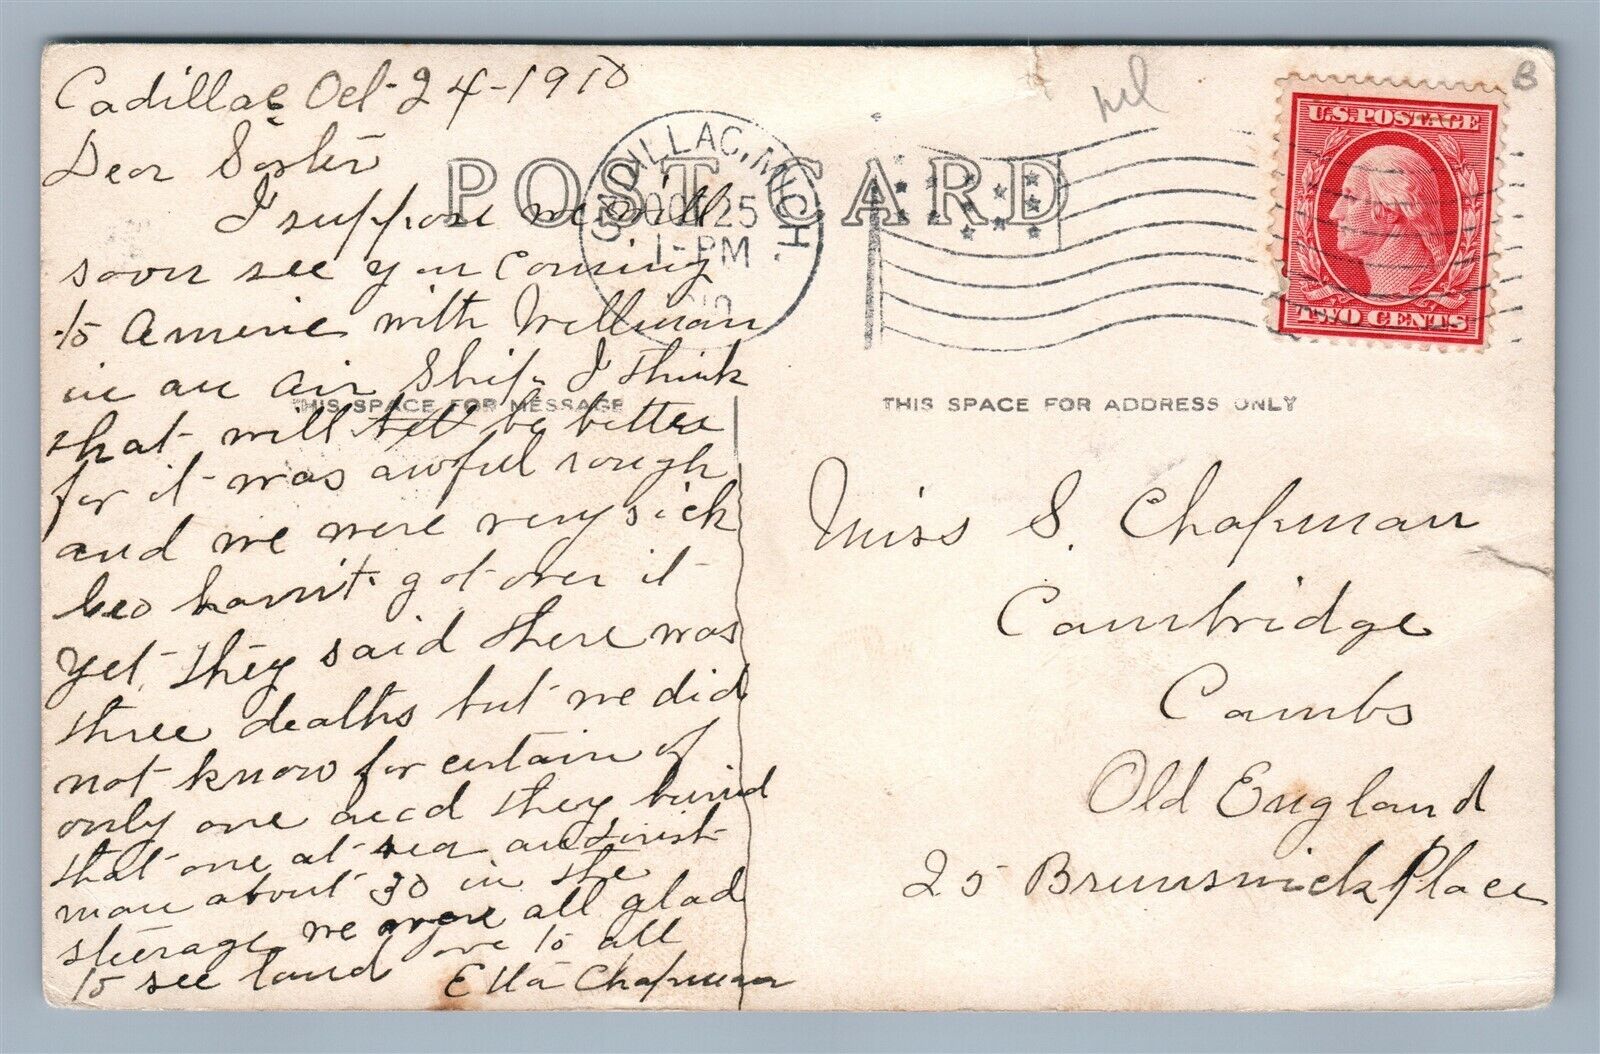 Cadillac Oct-24-1910
Dear Sister
I suppose we will
soon see you coming
to Americ with Wellman
in an air Ship. I think
that will be better
for it was awful rough
and we were very sick
havn't got over it
yet. they said there was
three deaths but we did
not know for certain of
only one and they buried
that one at sea
man about 30 in the
steerage we were all glad
to see land love to all
Ella Chapman
POST CARD
CADILLAC, MICH.
OCT 25
1-PM
1910
U.S. POSTAGE
TWO CENTS
B
THIS SPACE FOR MESSAGE
THIS SPACE FOR ADDRESS ONLY
Miss S. Chapman
Cambridge
Cambs
Old England
25 Brunswick Place